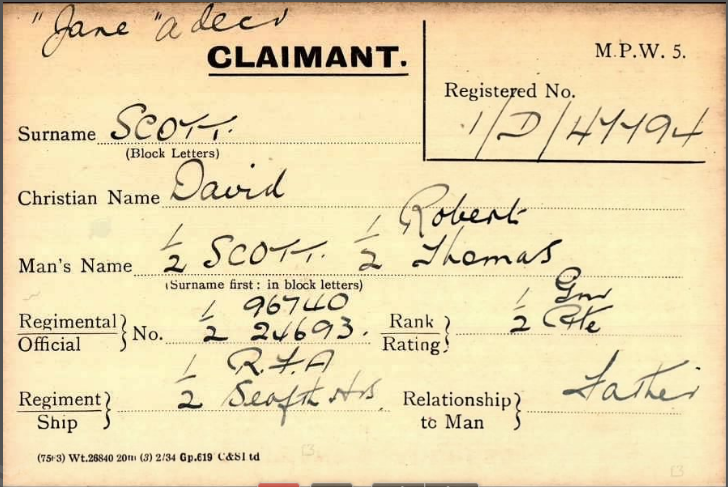 "Jane" a decd
CLAIMANT.
M.P.W. 5.
Registered No.
1/D/47794
Surname SCOTT.
(Block Letters)
Christian Name David
Man's Name 1/2 SCOTT. 1 Robert 2 Thomas
(Surname first: in block letters)
Regimental Official } No. 1 96740 2 24693.
Rank Rating } 1 Gnr 2 Pte
Regiment Ship } 1 R.F.A 2 Seafth Hrs
Relationship to Man } Father
(7503) Wt.26840 20m (3) 2/34 Gp.619 C&SI td